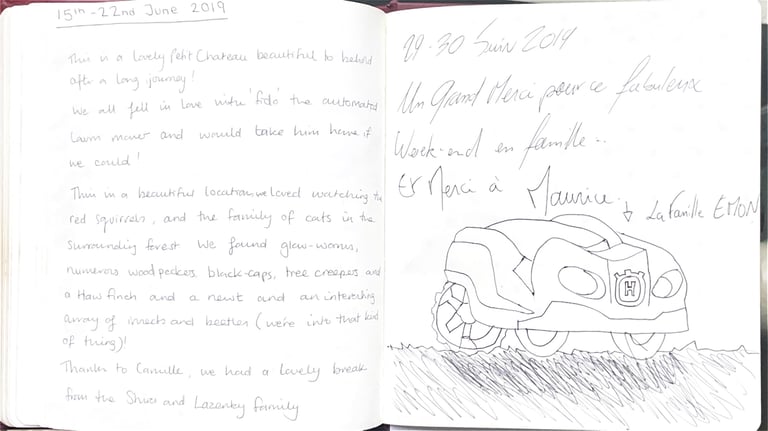 15th - 22nd June 2019
This is a lovely Petit Chateau beautiful to behold
after a long journey!
We all fell in love with 'fido' the automated
lawn mower and would take him home if
we could!
This is a beautiful location, we loved watching the
red squirrels, and the family of cats in the
surrounding forest. We found glow-worms,
numerous woodpeckers, black-caps, tree creepers and
a Hawfinch and a newt and an interesting
array of insects and beetles (we're into that kind
of thing)!
Thanks to Camille, we had a lovely break
from the and Lazenby family
29-30 Juin 2019
Un Grand Merci pour ce fabuleux
Week-end en famille..
Et Merci à Maurice.
La Famille ÉMON
H